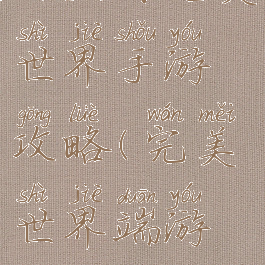 shì jiè shǒu yóu
世界手游
gōng lüè wán měi
攻略(完美
shì jiè duān yóu
世界端游